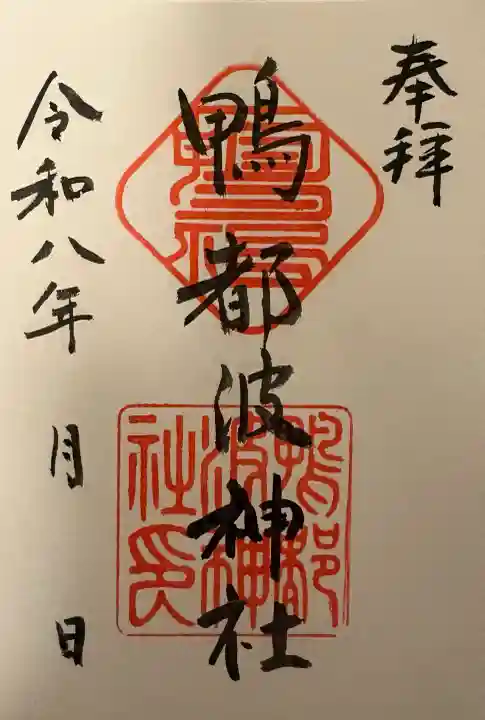 奉拝
鴨都波神社
鴨都波神社印
令和八年 月 日